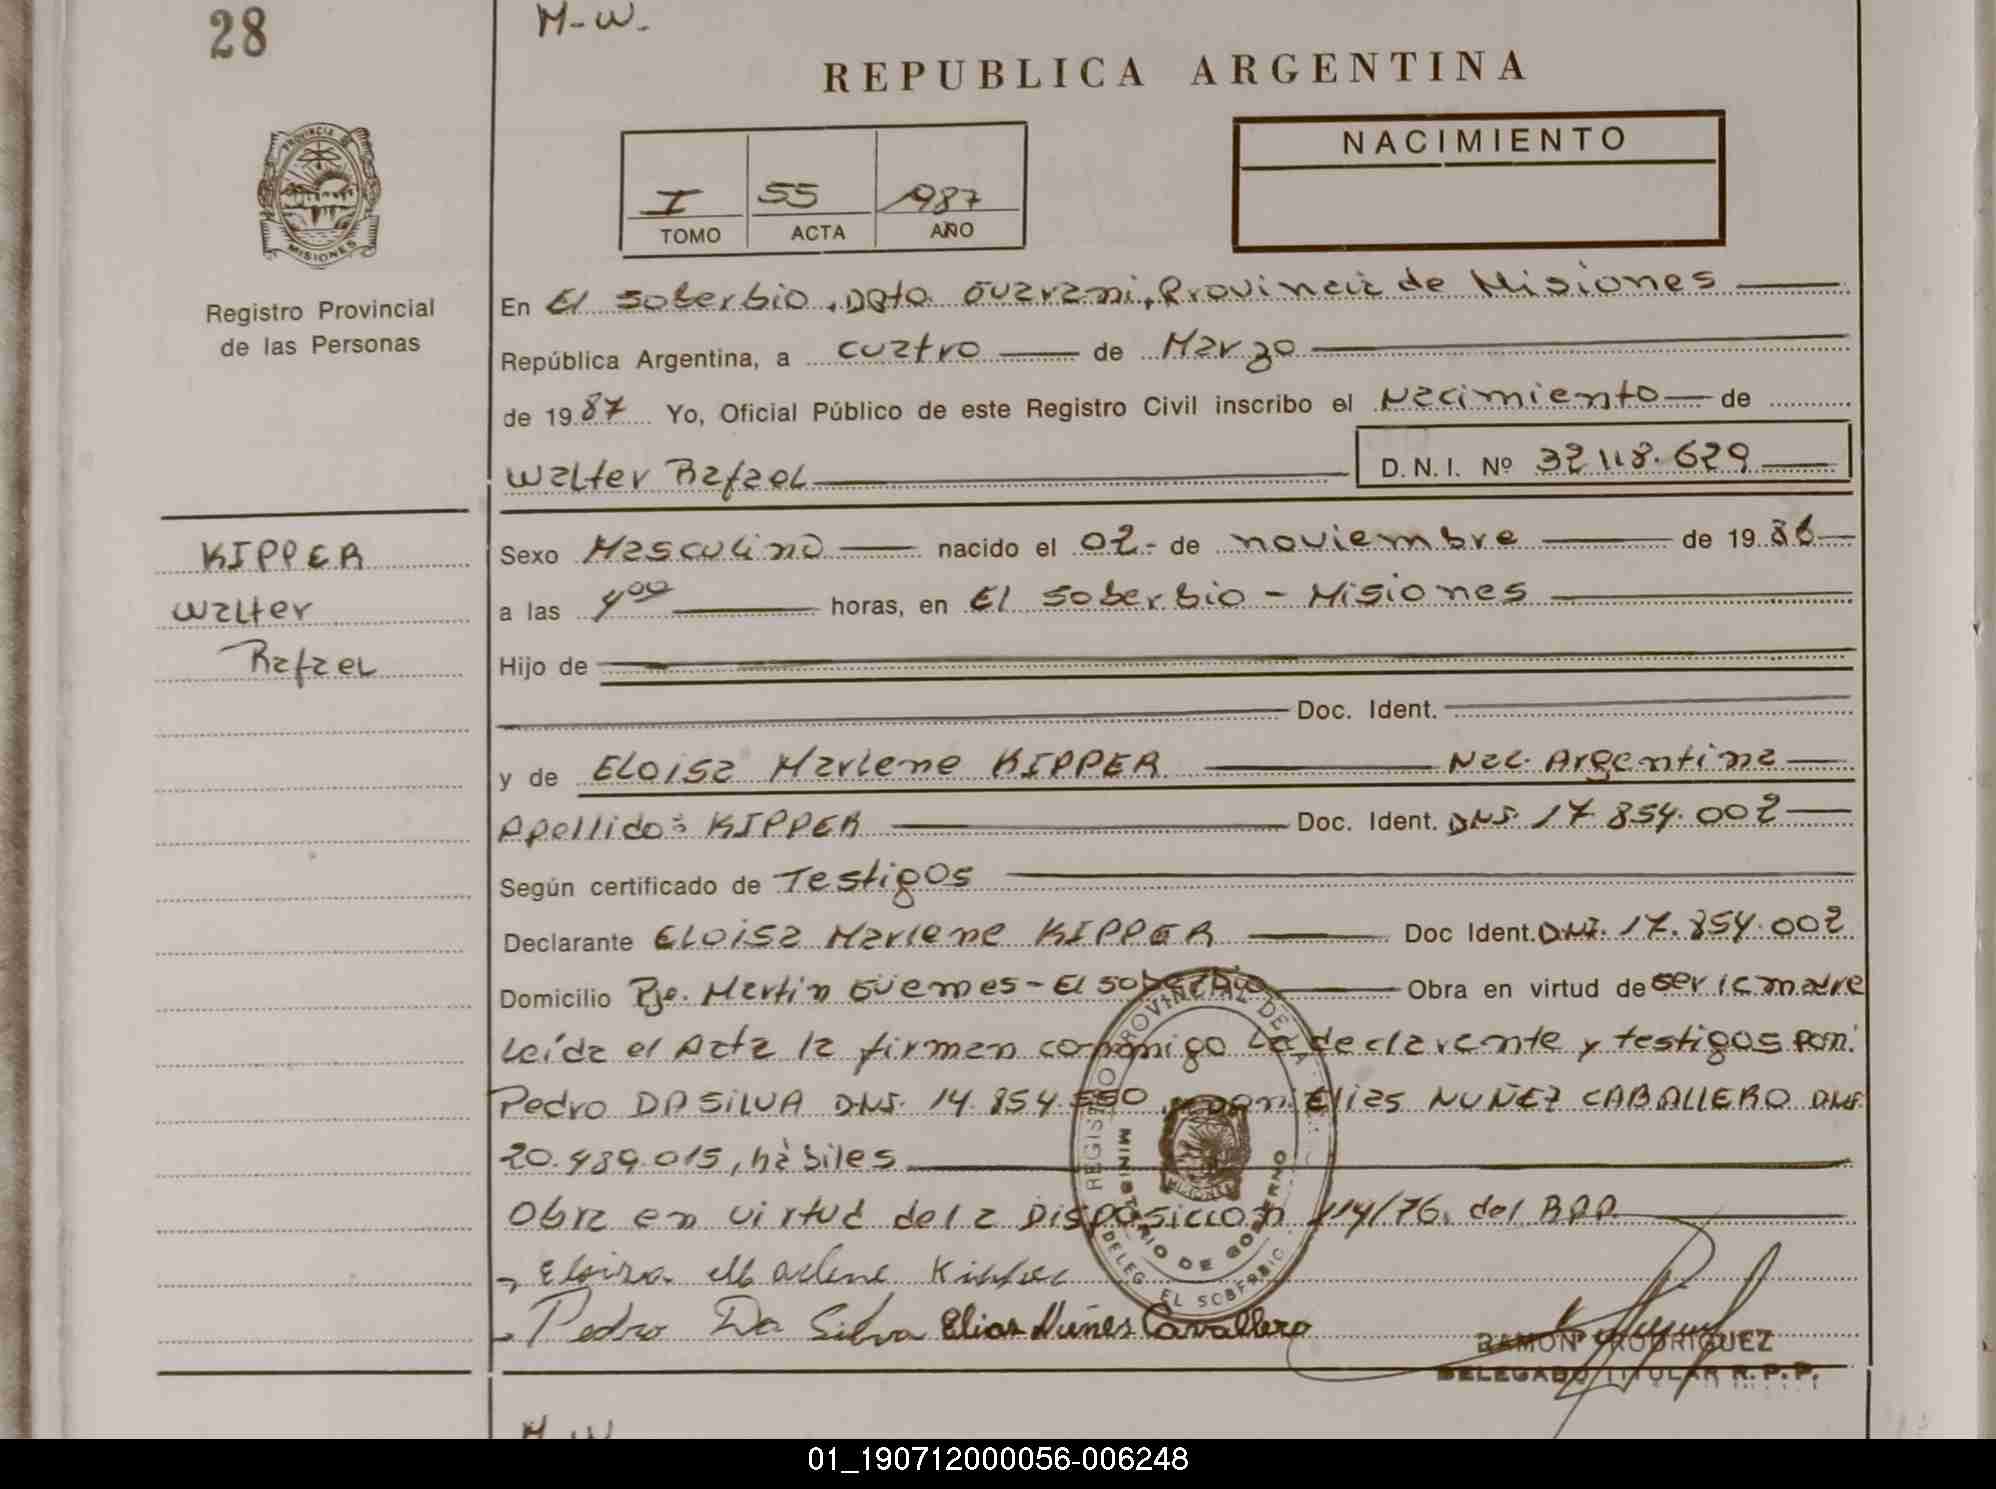 28
M-W.
REPUBLICA ARGENTINA
PROVINCIA DE
MISIONES
Registro Provincial
de las Personas
I 55 1987
TOMO ACTA AÑO
NACIMIENTO
En El Soberbio, Dpto Guarani, Provincia de Misiones
República Argentina, a cuatro de Marzo
de 1987 Yo, Oficial Público de este Registro Civil inscribo el Nacimiento de
Walter Rafael D.N.I. Nº 32.118.629
KIPPER
Walter
Rafael
Sexo Masculino nacido el 02- de noviembre de 1986
a las 4⁰⁰ horas, en El Soberbio - Misiones
Hijo de
Doc. Ident.
y de Eloisa Marlene KIPPER Nac. Argentina
Apellido: KIPPER Doc. Ident. DNI. 17.854.002
Según certificado de Testigos
Declarante Eloisa Marlene KIPPER Doc Ident. DNI. 17.854.002
Domicilio Pje. Martin Güemes - El Soberbio Obra en virtud de ser la madre
Leída el Acta la firman conmigo La declarante y testigos
Pedro DA SILVA DNI. 14.854.550 Elias NUÑEZ CABALLERO DNI
20.489.015, hàbiles
Obra en virtud de la Disposicion 114/76. del RPP
Eloisa Marlene Kipper
Pedro Da Silva Elias Nuñes Cavallero
REGISTRO PROVINCIAL DE LA
MINISTERIO DE GOBIERNO
DELEG. EL SOBERBIO
RAMON RODRIGUEZ
DELEGADO TITULAR R.P.P.
M W
01_190712000056-006248